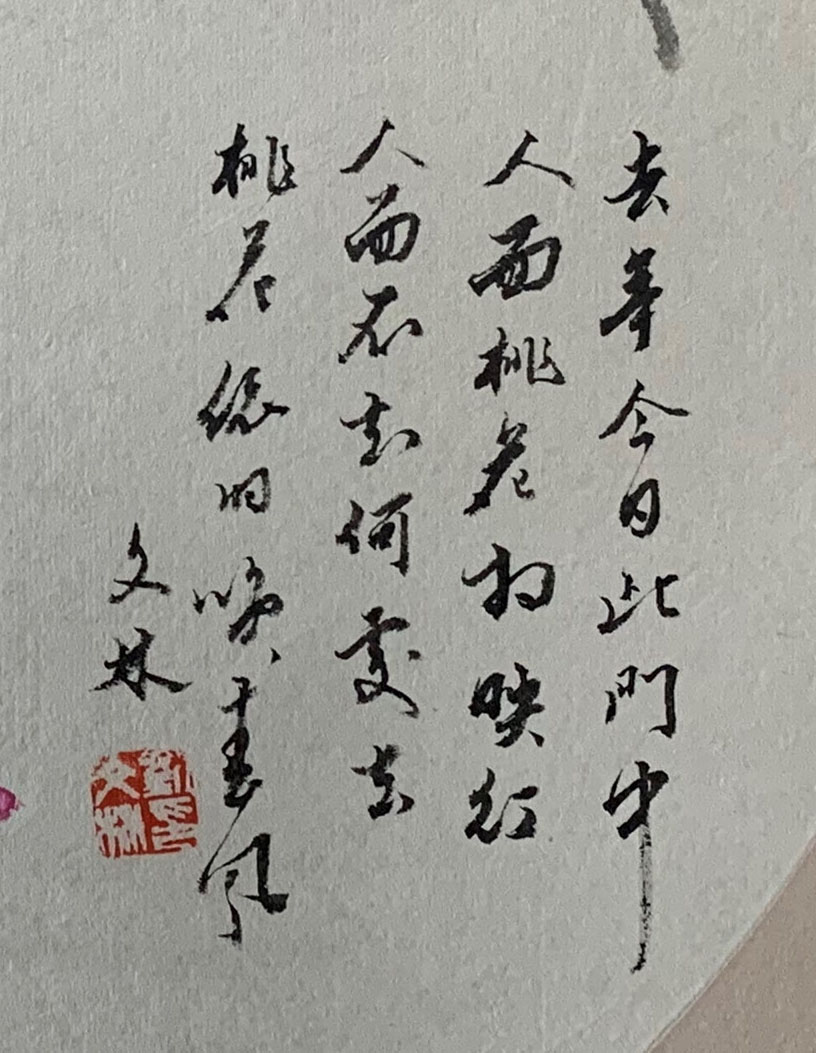 去年今日此門中
人面桃花相映红
人面不知何處去
桃花依旧笑春风
文林
劉文林印